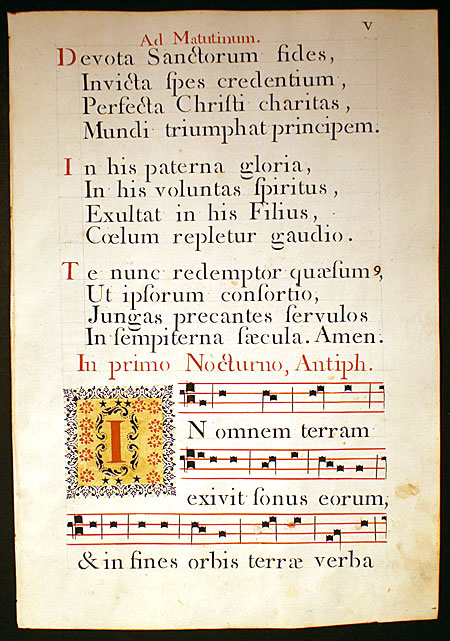 V
Ad Matutinum.
Devota Sanctorum fides,
Invicta ſpes credentium,
Perfecta Chriſti charitas,
Mundi triumphat principem.
In his paterna gloria,
In his voluntas ſpiritus,
Exultat in his Filius,
Cœlum repletur gaudio.
Te nunc redemptor quæſumꝰ,
Ut ipſorum conſortio,
Jungas precantes ſervulos
In ſempiterna ſæcula. Amen.
In primo Nocturno, Antiph.
IN omnem terram
exivit ſonus eorum,
& in fines orbis terræ verba